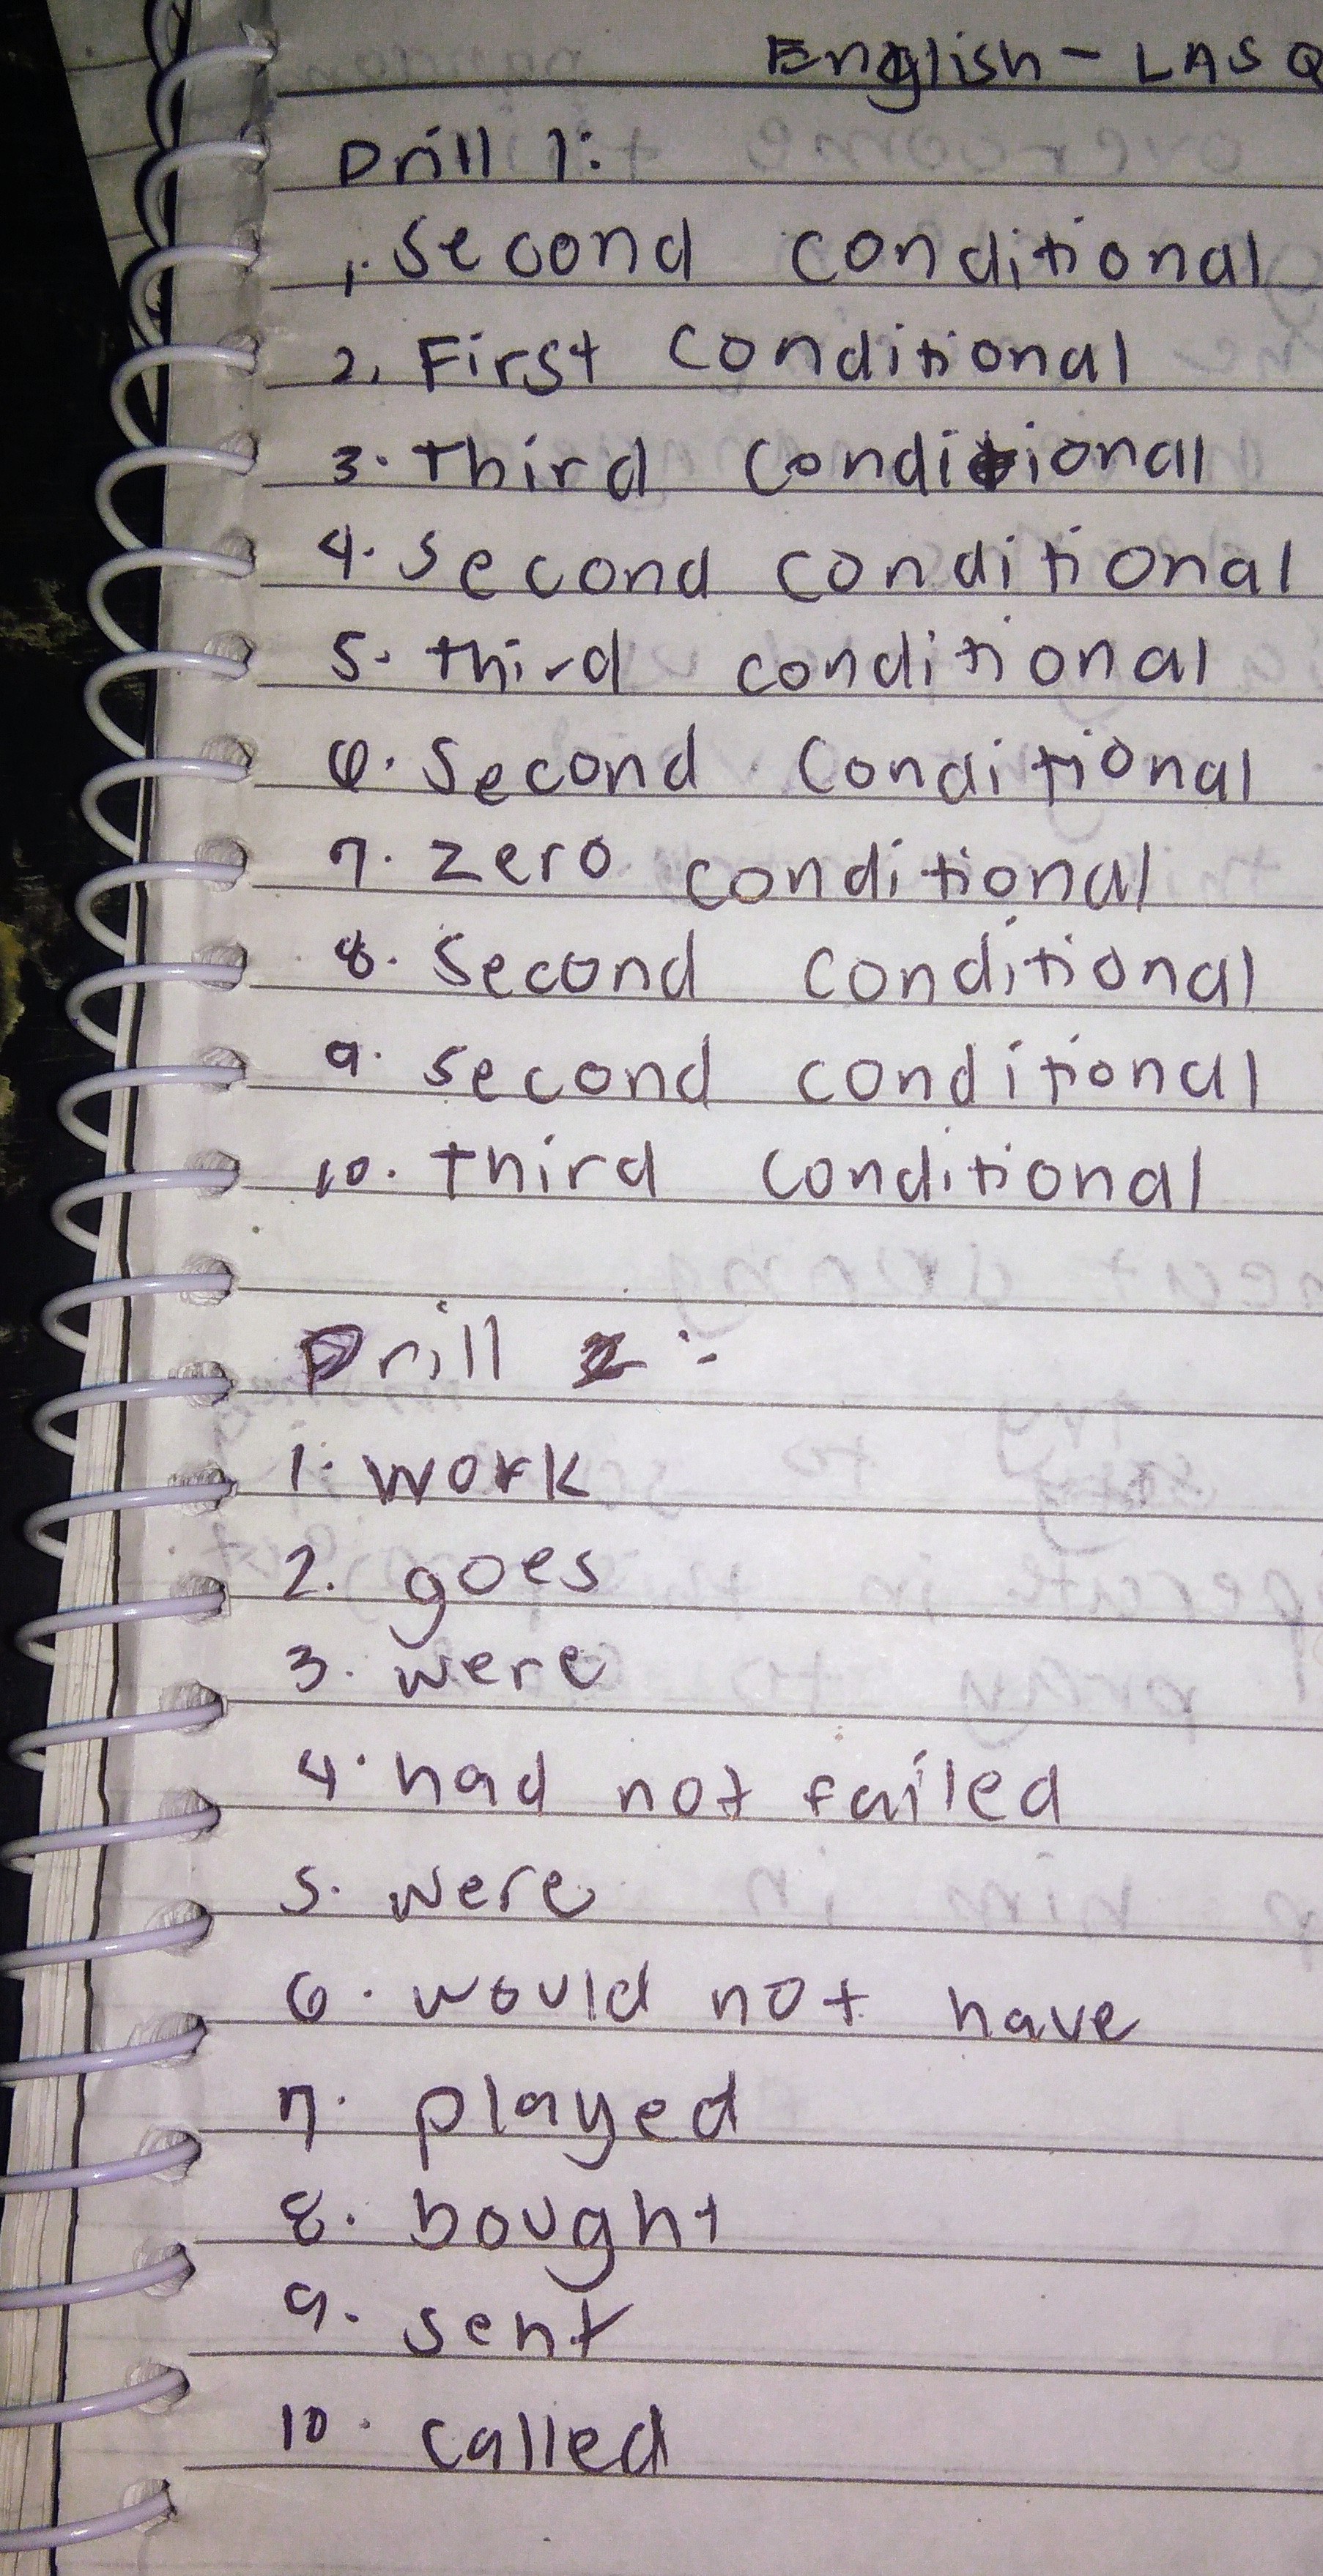 English - LAS Q
Drill 1:
1. Second conditional
2. First conditional
3. Third conditional
4. Second conditional
5. third conditional
6. Second conditional
7. Zero conditional
8. Second conditional
9. Second conditional
10. third conditional
Drill 2:
1. work
2. goes
3. were
4. had not failed
5. were
6. would not have
7. played
8. bought
9. sent
10. called